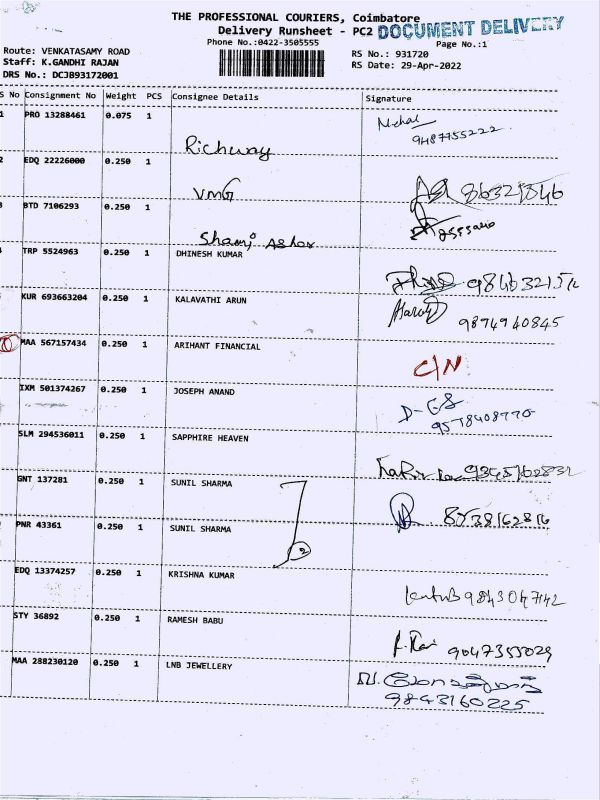 THE PROFESSIONAL COURIERS, Coimbatore
Delivery Runsheet - PC2
DOCUMENT DELIVERY
Phone No.:0422-3505555
Page No.:1
Route: VENKATASAMY ROAD
Staff: K.GANDHI RAJAN
DRS No.: DCJB93172001
RS No.: 931720
RS Date: 29-Apr-2022
S No Consignment No Weight PCS Consignee Details Signature
1 PRO 13288461 0.075 1 Richway 9487755222
2 EDQ 22226000 0.250 1 VMG
3 BTD 7106293 0.250 1
TRP 5524963 0.250 1 DHINESH KUMAR
KUR 693663204 0.250 1 KALAVATHI ARUN 9874940845
MAA 567157434 0.250 1 ARIHANT FINANCIAL C/N
IXM 501374267 0.250 1 JOSEPH ANAND 9578408770
SLM 294536011 0.250 1 SAPPHIRE HEAVEN
GNT 137281 0.250 1 SUNIL SHARMA
PNR 43361 0.250 1 SUNIL SHARMA 2
EDQ 13374257 0.250 1 KRISHNA KUMAR 9843047142
STY 36892 0.250 1 RAMESH BABU 9047355029
MAA 288230120 0.250 1 LNB JEWELLERY
9843160225